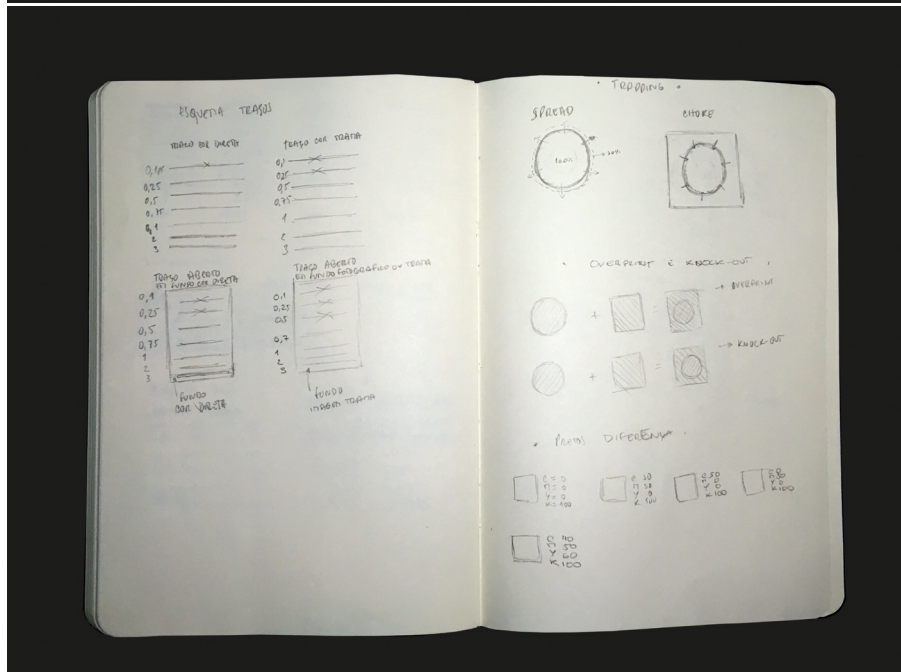 ESQUEMA TRAÇOS
TRAÇO COR DIRETA
0,25
0,5
0,75
0,1
2
3
TRAÇO COM TRAMA
0,1
0,25
0,5
0,75
1
2
3
TRAÇO ABERTO
EM FUNDO COR DIRETA
0,1
0,25
0,5
0,75
1
2
3
FUNDO
COR DIRETA
TRAÇO ABERTO
EM FUNDO FOTOGRAFICO OU TRAMA
0,1
0,25
0,5
0,7
1
2
3
FUNDO
IMAGEM TRAMA
• TRAPPING •
SPREAD
CHOKE
• OVERPRINT E KNOCK-OUT •
+ = → OVERPRINT
+ = → KNOCK-OUT
• PRETOS DIFERENÇA •
C = 0
M = 0
Y = 0
K = 100
Y 0
K 100
C 50
M 0
Y 0
K 100
Y 0
K 100
C 40
M 50
Y 60
K 100